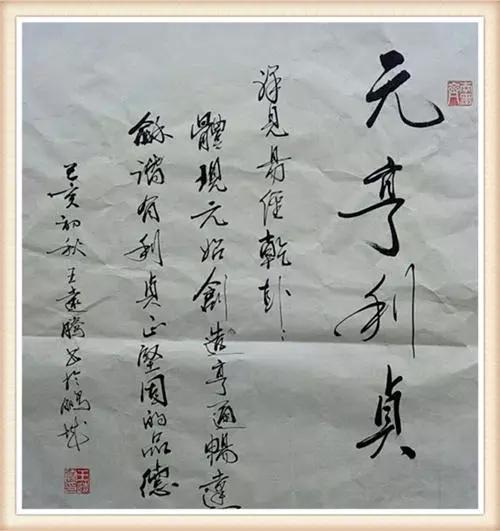 元亨利貞
詳見易經乾卦：
體現元始創造亨通暢達
龢諧有利貞正堅固的品德
己亥初秋王遠騰書於鵬城